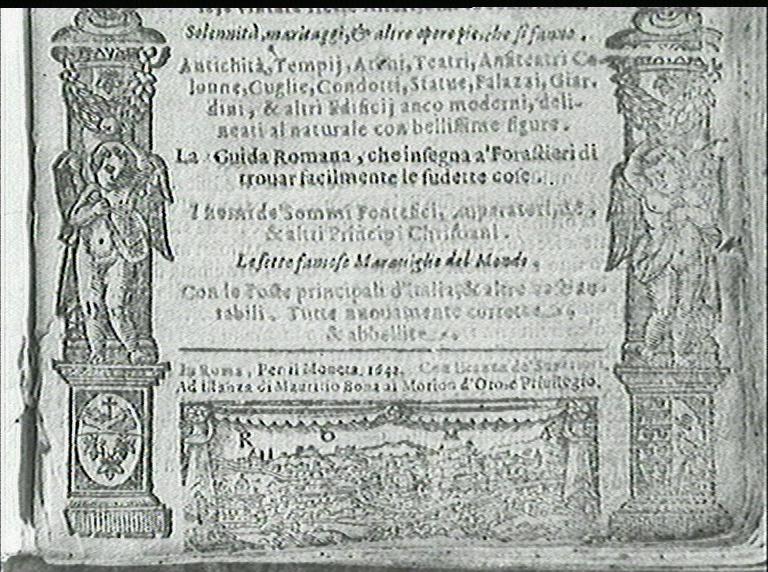 Solennità, maritaggi, & altre opere pie, che si fanno.
Antichità, Tempij, Archi, Teatri, Anfiteatri Co-
lonne, Guglie, Condotti, Statue, Palazzi, Giar-
dini, & altri Edificij anco moderni, deli-
neati al naturale con bellissime figure.
La Guida Romana, che insegna a' Forastieri di
trouar facilmente le sudette cose.
I nomi de' Sommi Pontefici, Imperatori,
& altri Principi Christiani.
Le sette famose Marauiglie del Mondo,
Con le Poste principali d'Italia, & altre
tabili. Tutte nuouamente corrette,
& abbellite.
In Roma, Per il Moneta. 164 Con licenza de' Superiori,
Ad istanza di Mauritio Bona al Morion d'Oro, e Priuilegio.
R O M A